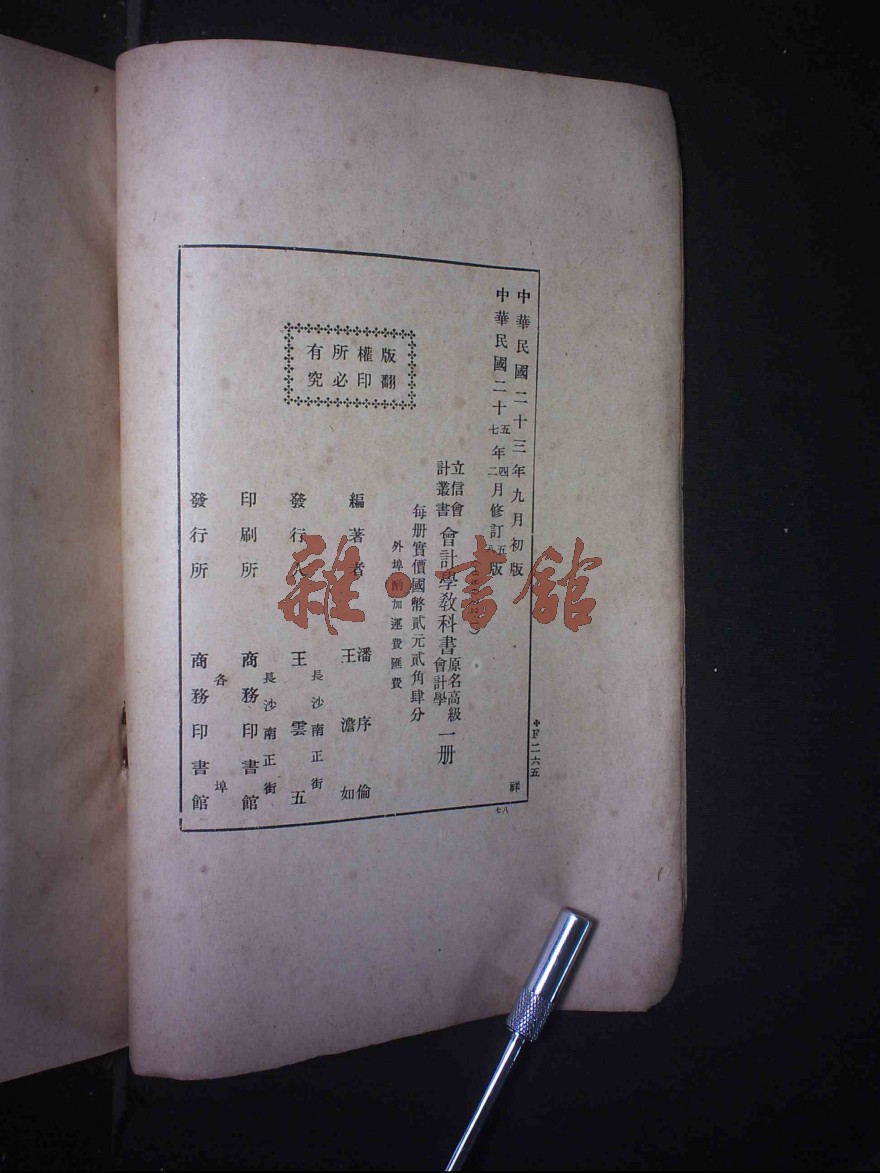 中華民國二十三年九月初版
中華民國二十五年四月修訂五版
七 二
立信會計叢書
會計學教科書
原名高級會計學
一册
每册實價國幣貳元貳角肆分
外埠酌加運費匯費
編著者 潘序倫 王澹如
發行人 王雲五
長沙南正街
印刷所 商務印書館
長沙南正街
發行所 商務印書館
各埠
版權所有
翻印必究
F二六五
祥
七八
雜·書館